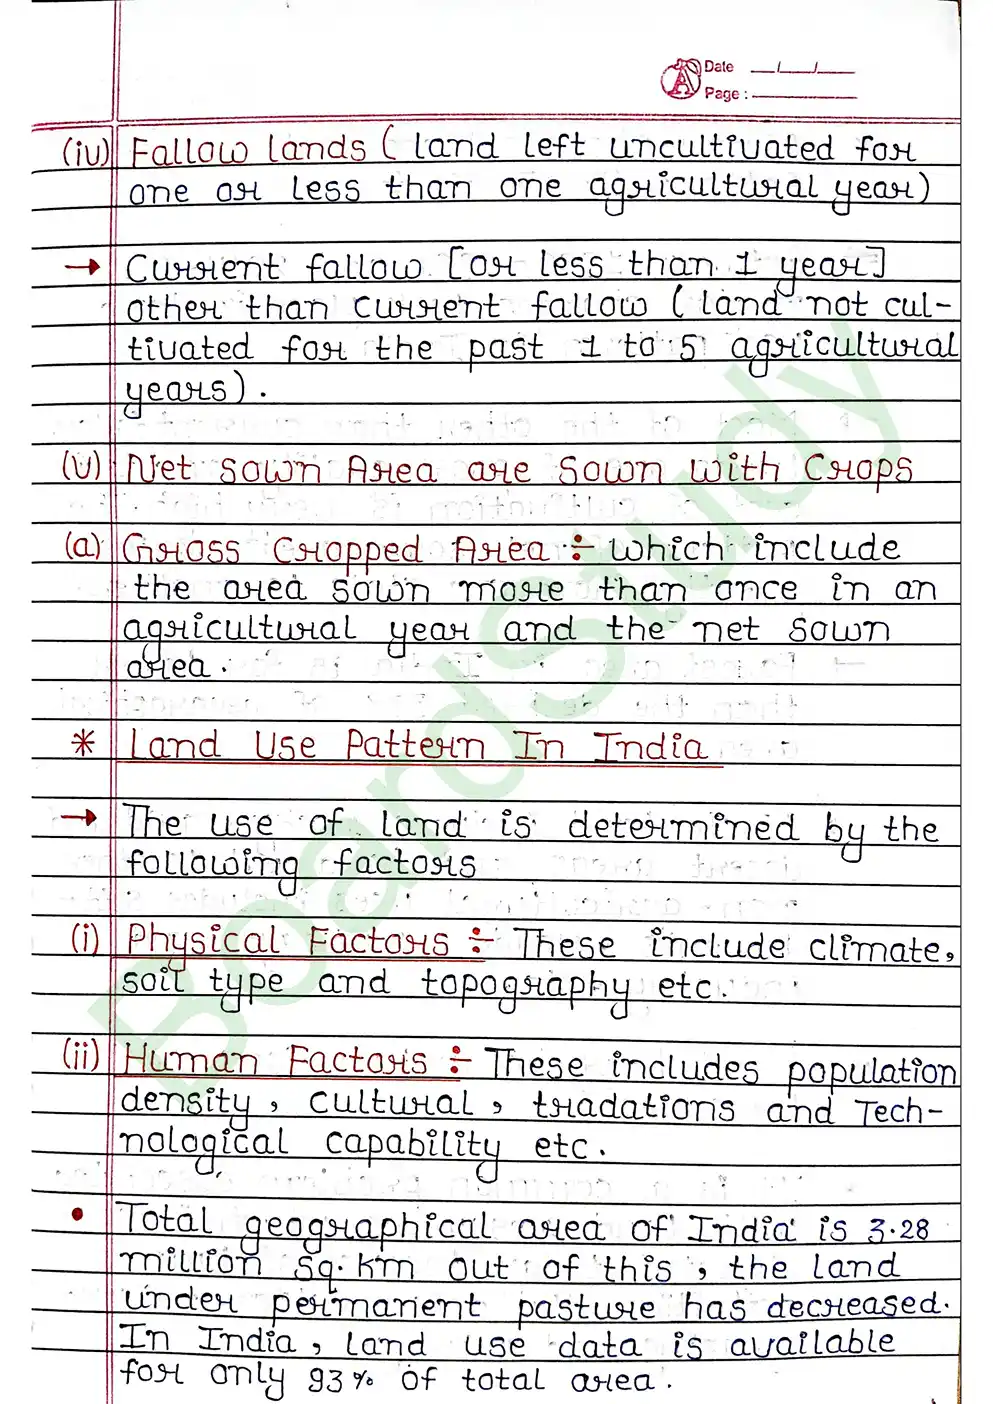 Date __/__/__
Page : ________
(iv) Fallow lands ( land left uncultivated for
one or less than one agricultural year)
→ Current fallow [or less than 1 year]
other than current fallow ( land not cul-
tivated for the past 1 to 5 agricultural
years) .
(v) Net sown Area are sown with Crops
(a) Gross Cropped Area ÷ which include
the area sown more than once in an
agricultural year and the net sown
area .
* Land Use Pattern In India
→ The use of land is determined by the
following factors
(i) Physical Factors ÷ These include climate,
soil type and topography etc .
(ii) Human Factors ÷ These includes population
density , cultural , tradations and Tech-
nological capability etc .
• Total geographical area of India is 3.28
million sq. km out of this , the land
under permanent pasture has decreased.
In India , land use data is available
for only 93% of total area .
BoardStudy